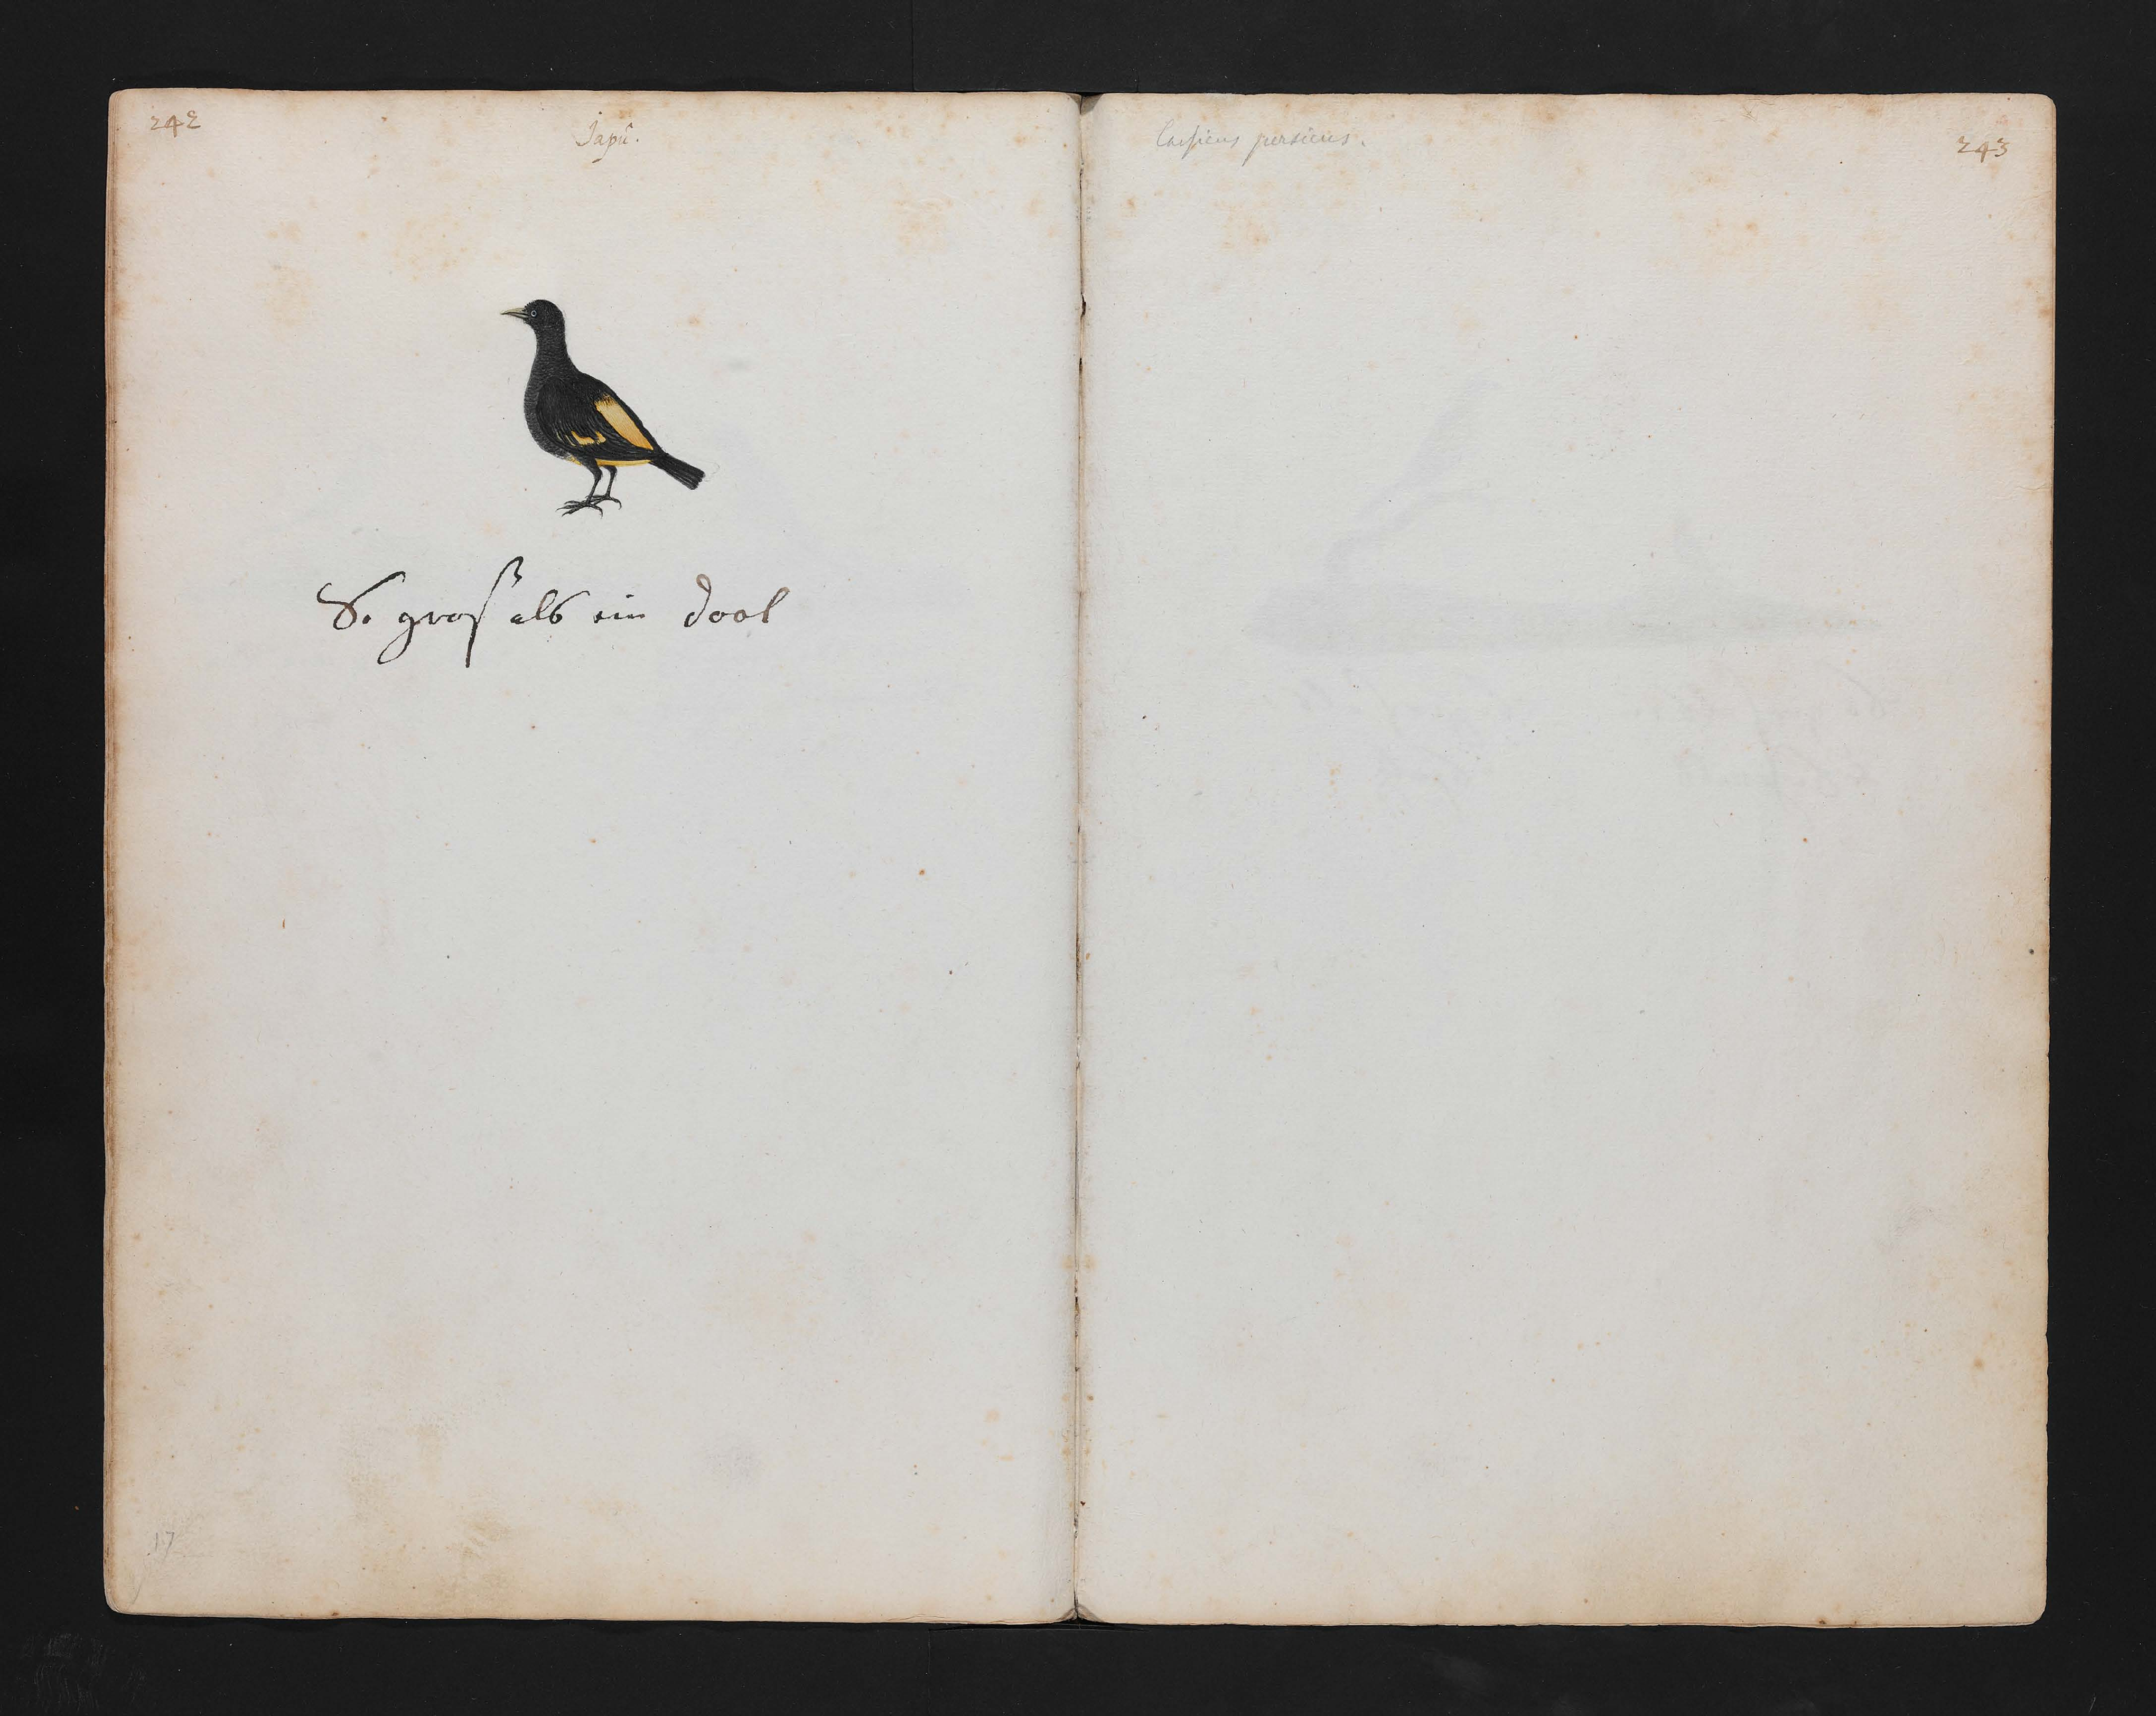 242
Japû.
So groß als ein dool
17
Cassicus persicus.
243